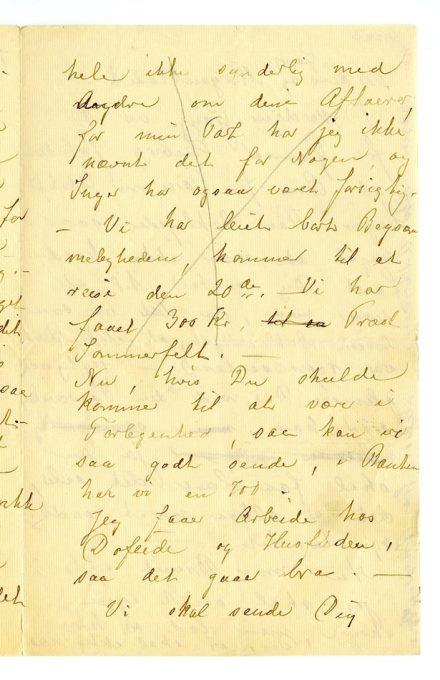 hele ikke synderlig med
Andre om dine Affairer,
for min Part har jeg ikke
nævnt det for Nogen og
Inger har ogsaa været forsigtig.
– Vi har leiet bort
kommer til at
reise den 20de. Vi har
faaet 300 Kr, til
Sommerfelt. —
Nu, hvis Du skulde
komme til at være i
Forlegenhed, saa kan vi
saa godt sende, i Banken
har vi en 700.
Jeg faaer Arbeide hos
og
saa det gaar bra. —
Vi skal sende Dig
for
det
saa